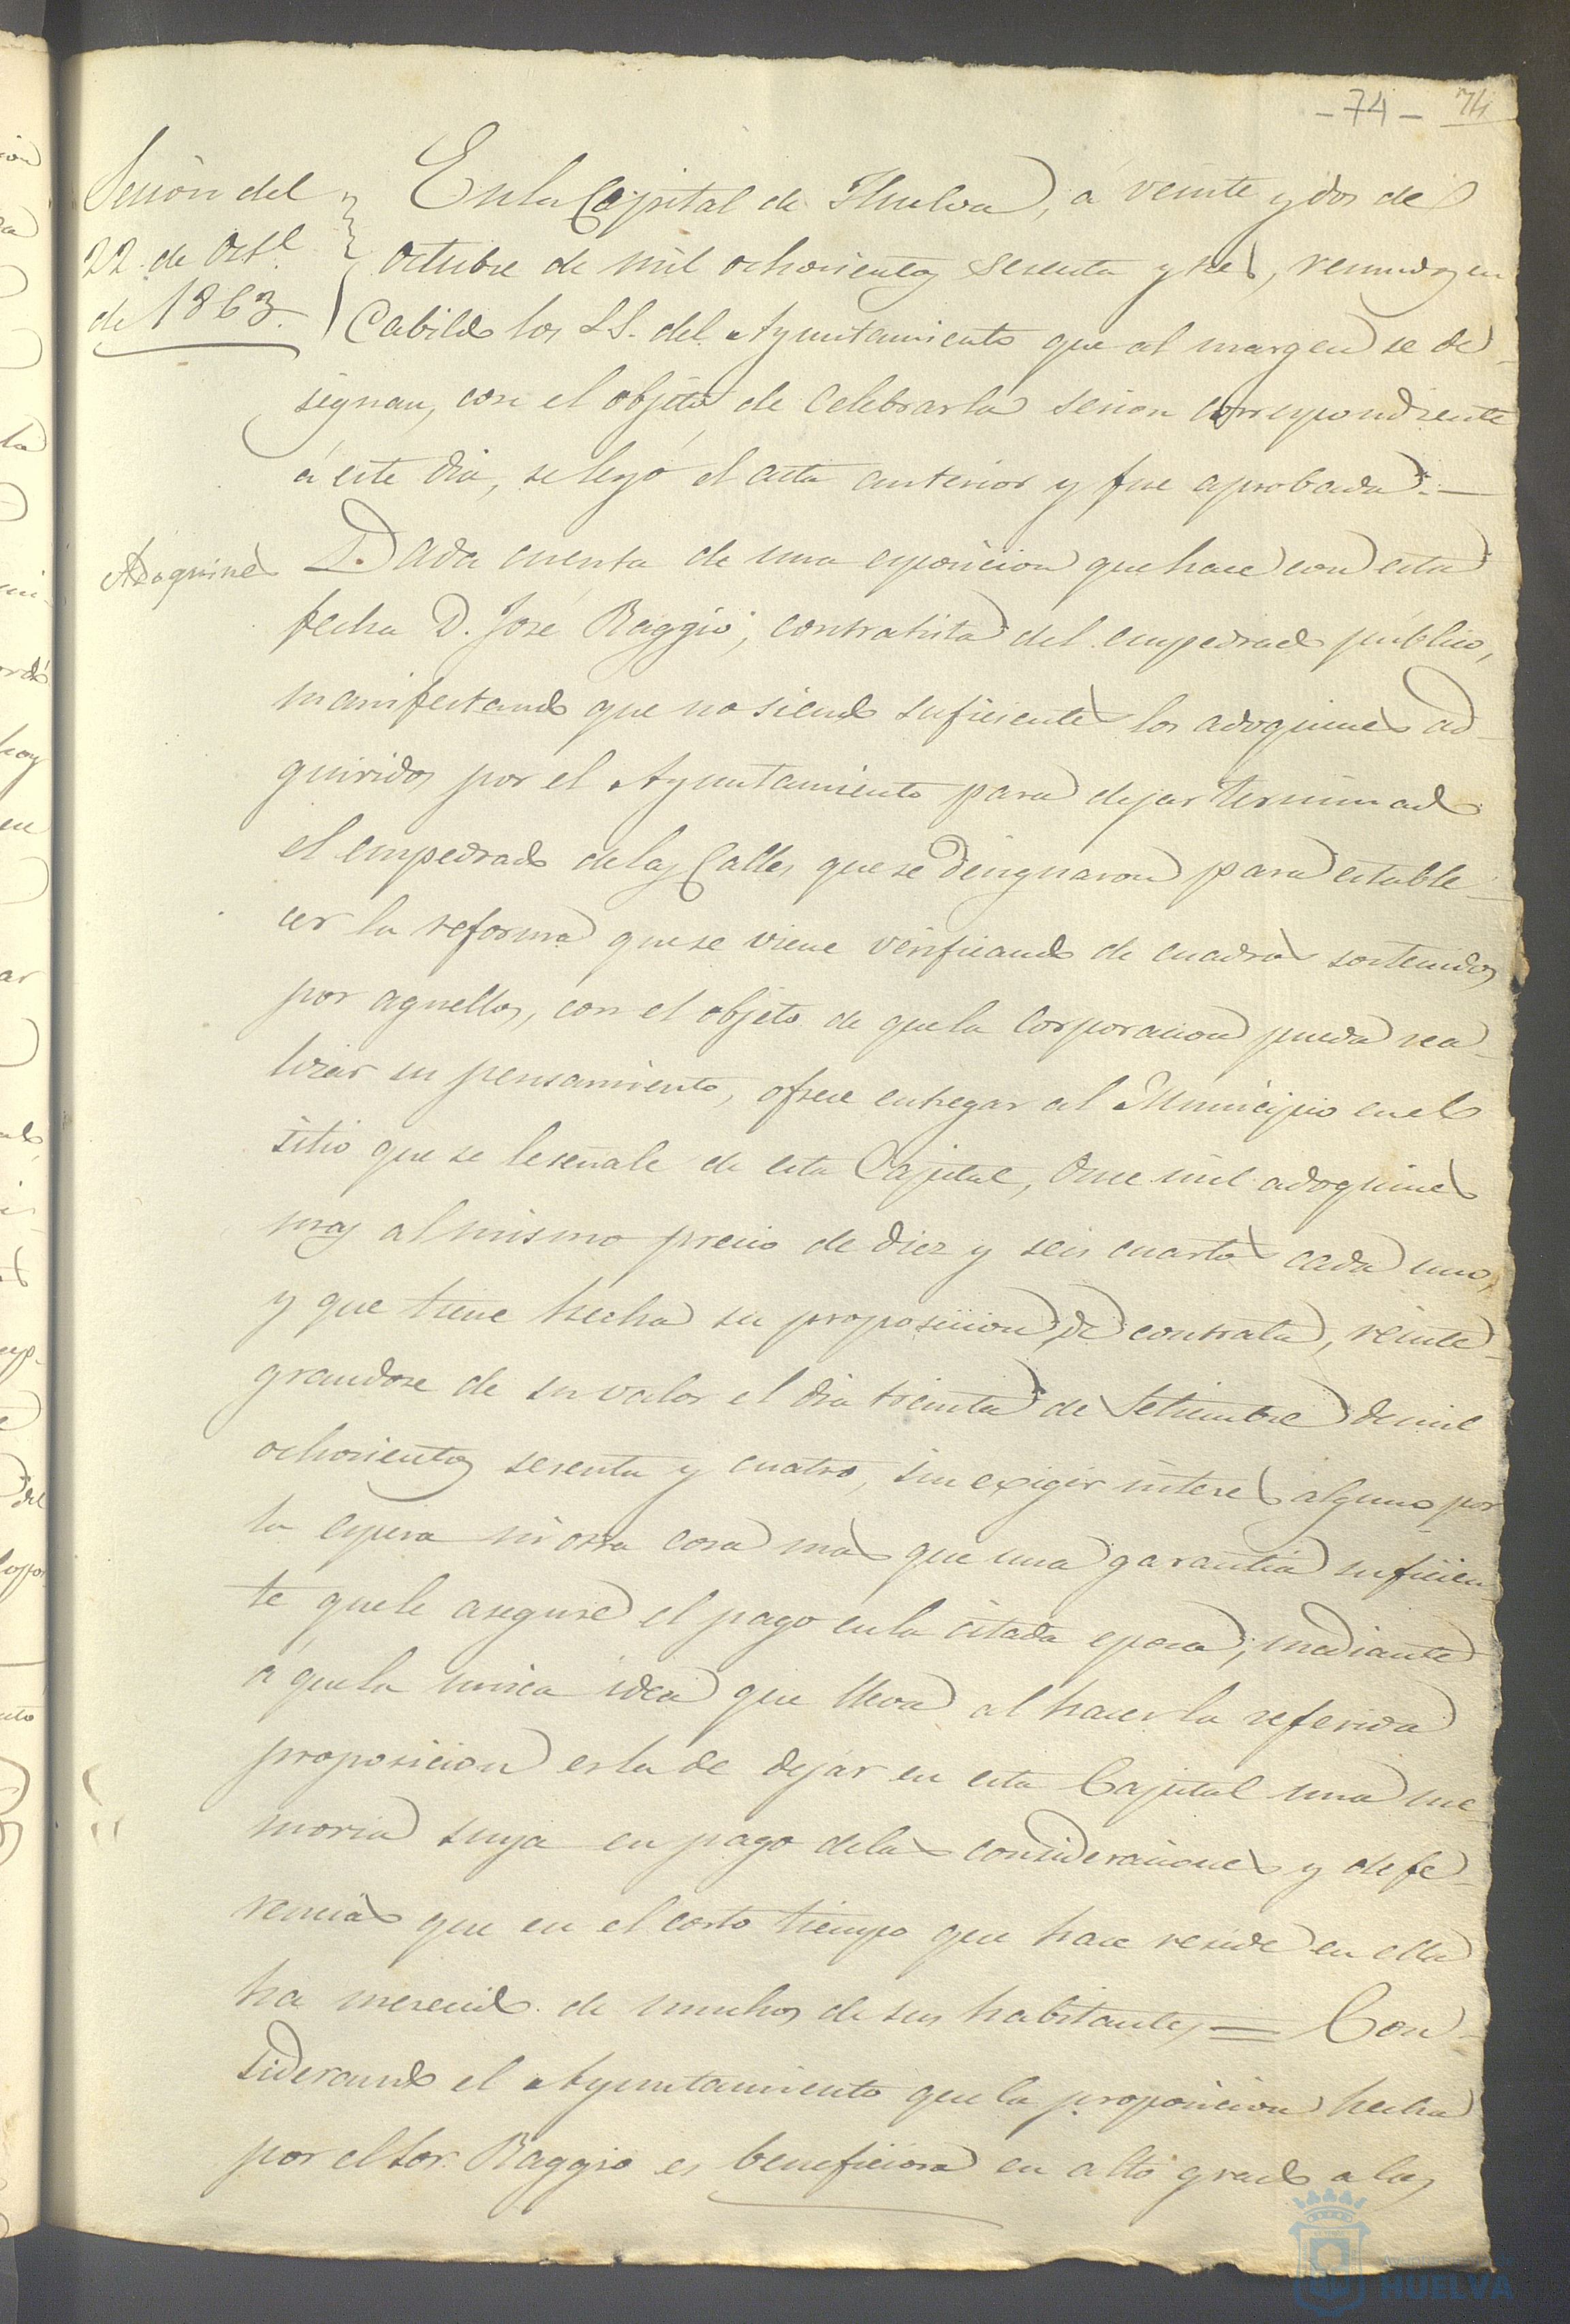 - 74 - 74
Sesion del
22 de Octe
de 1863.
En la Capital de Huelva, á veinte y dos de
Octubre de mil ochocientos sesenta y tres, reunidos en
Cabildo los S.S. del Ayuntamiento que al margen se de-
signan, con el objeto de celebrar la sesion correspondiente
á este dia, se leyó el acta anterior y fue aprobada.—
Adoquines
Dada cuenta de una exposicion que hace con esta
fecha D. José Baggio, contratista del empedrado público,
manifestando que no siendo suficientes los adoquines ad-
quiridos por el Ayuntamiento para dejar terminado
el empedrado de las Calles que se designaron para estable-
cer la reforma que se viene verificando de cuadros sostenidos
por aquellos, con el objeto de que la Corporacion pueda rea-
lizar su pensamiento, ofrece entregar al Municipio en el
sitio que se le señale de esta Capital, Once mil adoquines
mas al mismo precio de diez y seis cuartos cada uno,
y que tiene hecha su proposicion de contrata, reinte-
grandose de su valor el dia treinta de Setiembre de mil
ochocientos sesenta y cuatro, sin exigir interes alguno por
la espera ni otra cosa mas que una garantia suficien
te que le asegure el pago en la citada epoca; mediante
á que la unica idea que lleva al hacer la referida
proposicion es la de dejar en esta Capital una me
moria suya en pago de las consideraciones y defe-
rencias que en el corto tiempo que hace reside en ella
ha merecido de muchos de sus habitantes = Con-
siderando el Ayuntamiento que la proposicion hecha
por el Sor. Baggio es beneficiosa en alto grado a los
HUELVA